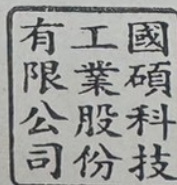 國碩科技
工業股份
有限公司